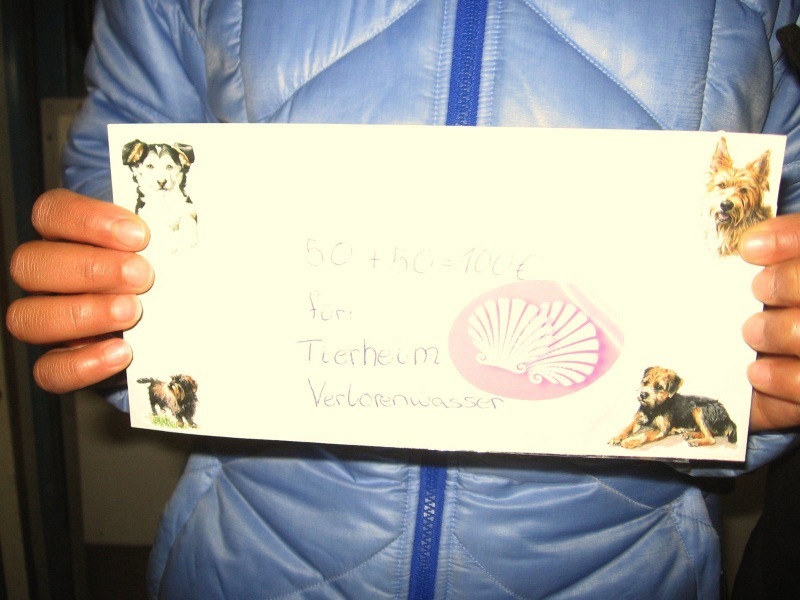 50 + 50 = 100 €
für:
Tierheim
Verlorenwasser